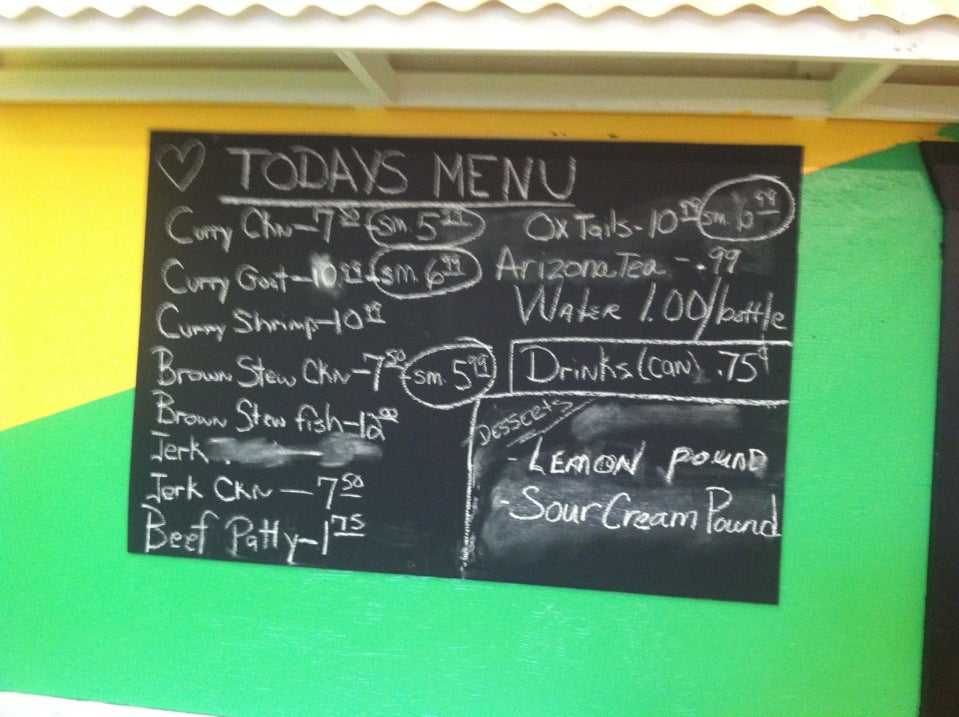 TODAYS MENU
Curry Ckn-7 50 sm. 5 99
Curry Goat-10.99-sm. 6 99
Curry Shrimp-10 99
Brown Stew Ckn-7 50-sm. 5 99
Brown Stew fish-12 00
Jerk
Jerk Ckn-7 50
Beef Patty-1 75
Ox Tails-10 99 sm. 6 99
Arizona Tea -.99
Water 1.00/bottle
Drinks (can) .75¢
Desserts
- Lemon pound
- Sour Cream Pound